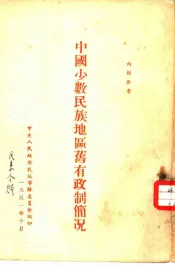 內部參考
中國少數民族地區舊有政制簡况
中央人民政府民族事務委員會編印
一九五一年十月